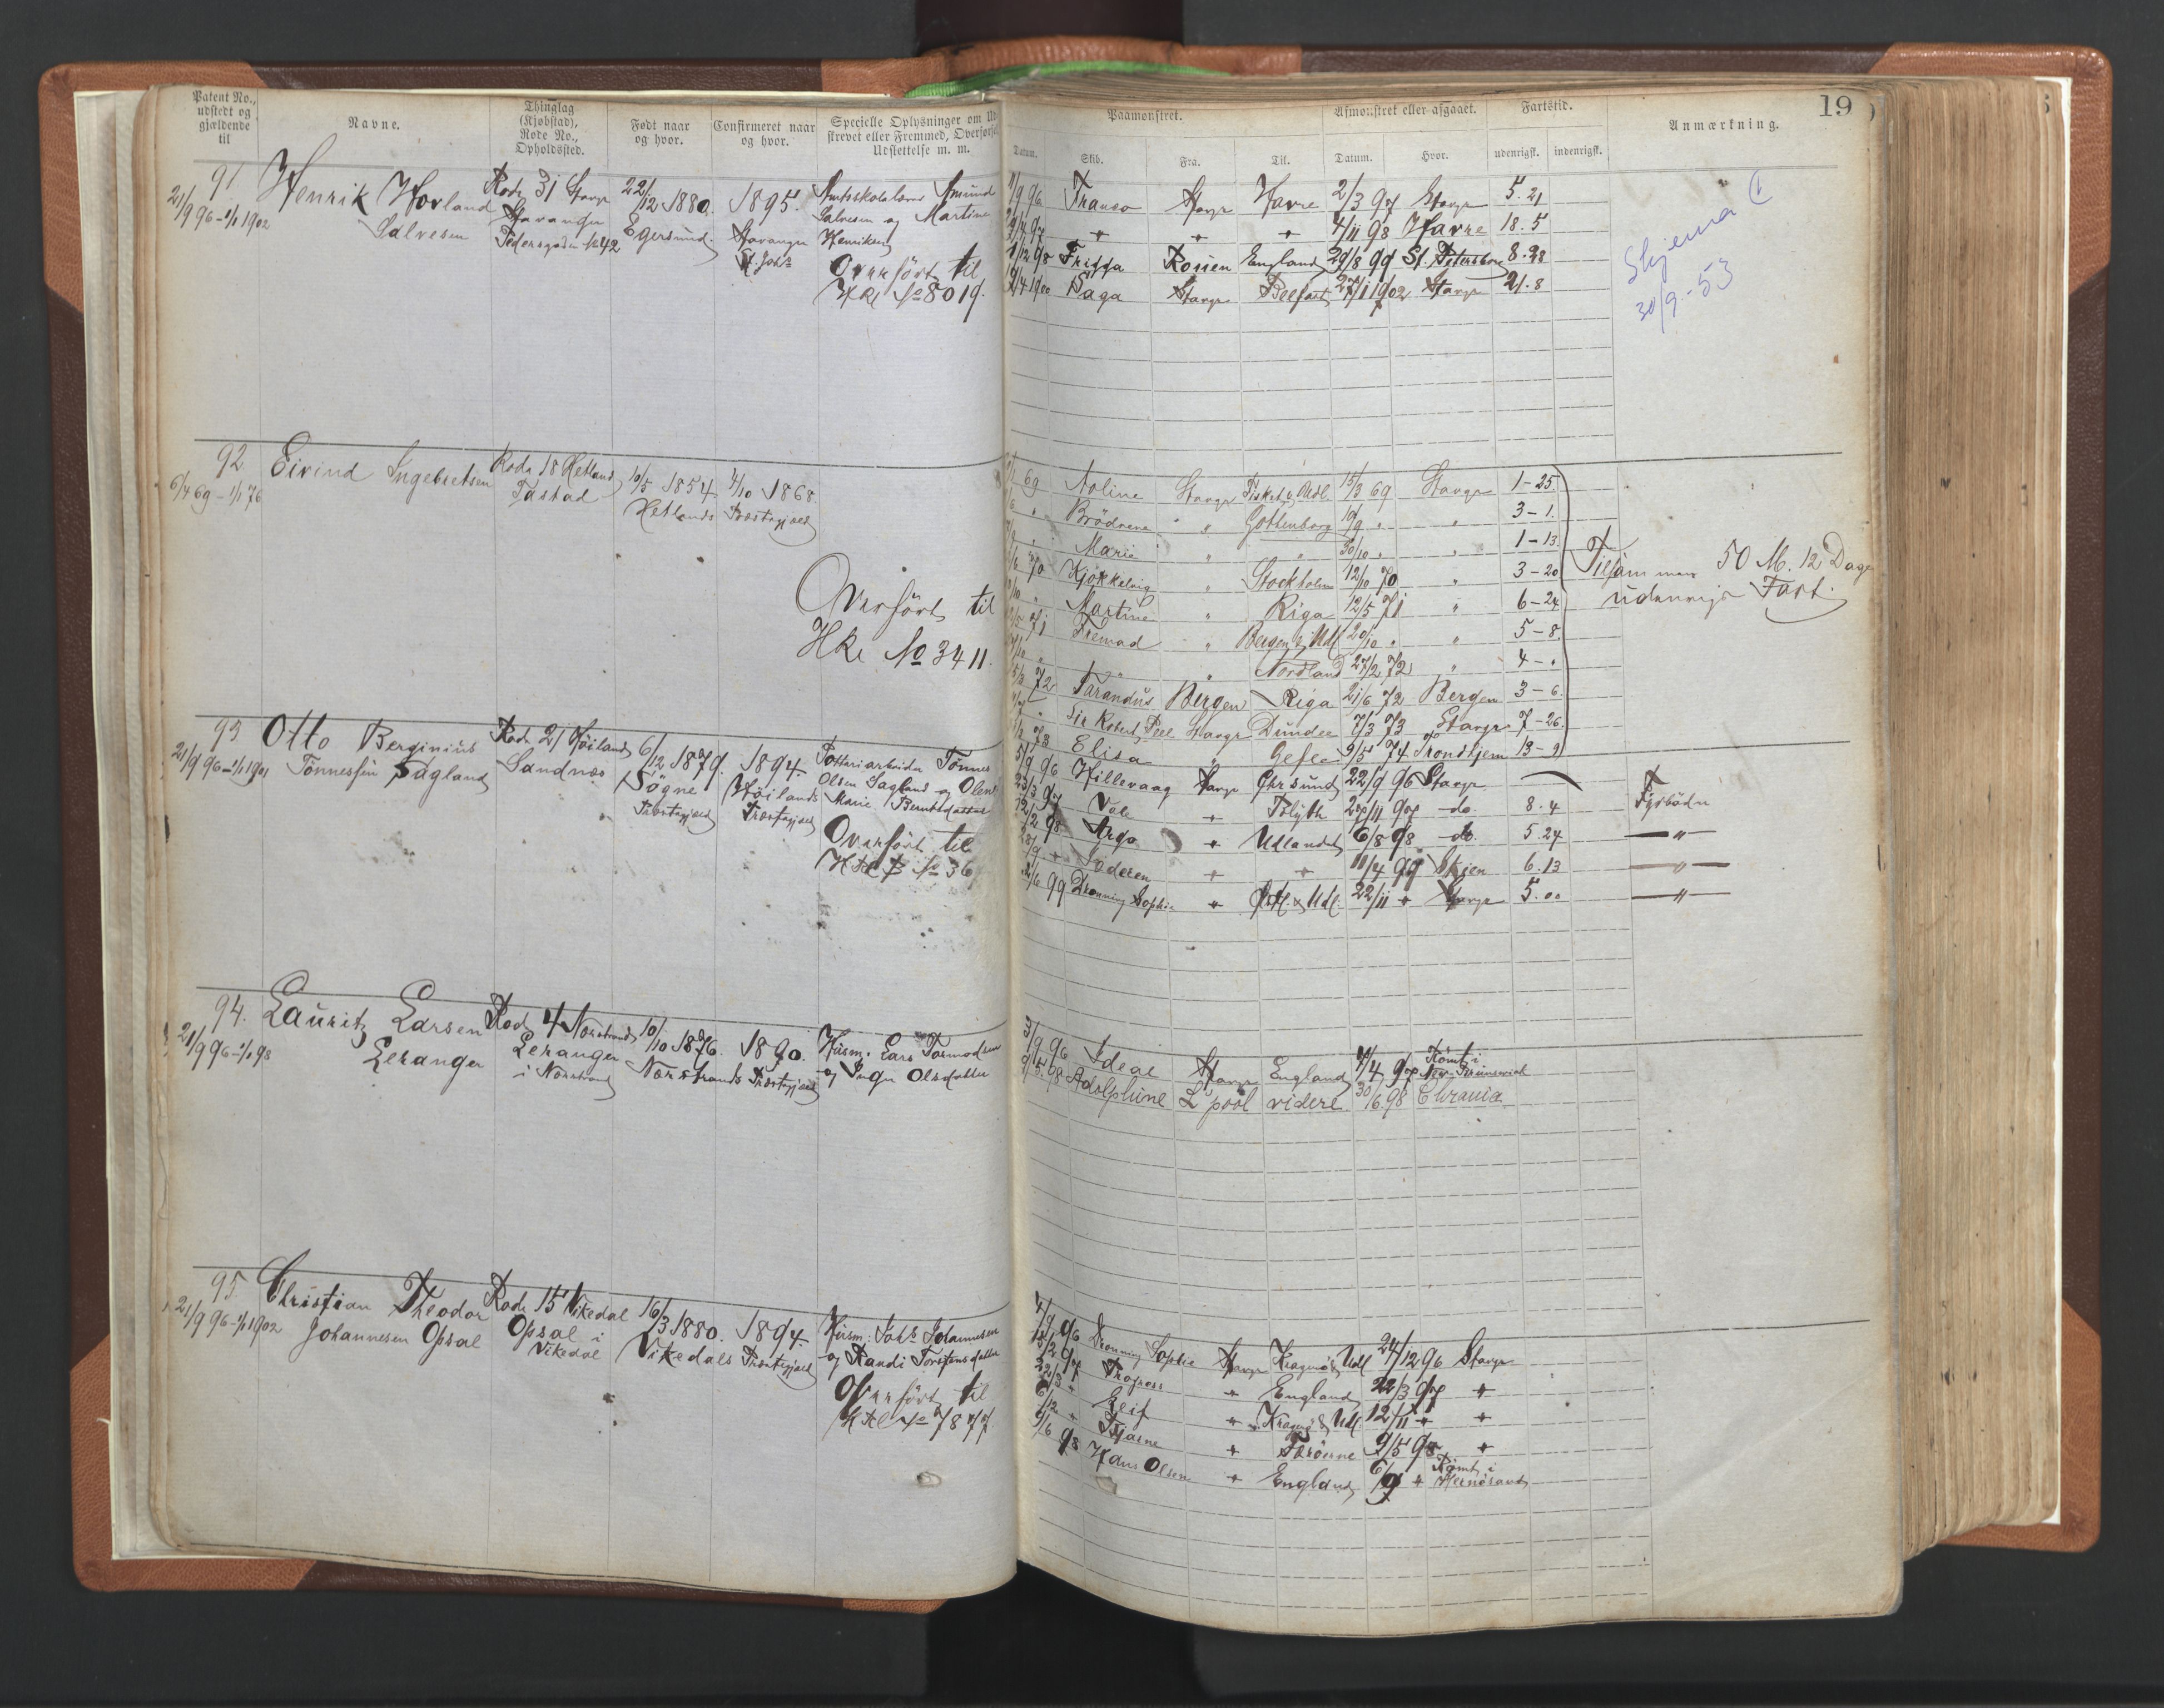 Patent No., udstedt og gjældende til
Navne.
Thinglag (Kjøbstad), Rode No., Opholdssted.
Født naar og hvor.
Confirmeret naar og hvor.
Specielle Oplysninger om Ud
skrevet eller Fremmed, Overførsel
Udslettelse m. m.
Paamønstret.
Afmønstret eller afgaaet.
Fartstid.
Anmærkning.
19
Datum. Skib. Fra. Til. Datum. Hvor. udenrigsk. indenrigsk.
91
21/9 96 - 1/1 1902
Henrik Hovland
Salvesen
Rode 31 Stavgr
Stavanger
Pedersgaden No 42
22/12 1880.
Egersund.
1895.
Stavanger
St. Joh's
Amund
Salvesen og Martine
Henriksen
Overført til
HRe No 8019.
9 96 Franco Stavgr Havre 2/3 97 Stavgr 5.21
4/11 98 Havre 18.5
98 Frigga Rouen England 29/8 99 St. Petersborg 8.28
1900 Saga Stavgr Belfast 27/1 1902 Stavgr 21.8
Skjema 1
30/9-53
92
6/4 69 - 1/1 76
Eivind Ingebretsen
Rode 18 Hetland
Tastad
10/5 1854
Hetlands Præstegjæld
4/10 1868
Overført til
HRe No 3411.
69 Noline Stavgr Fisket & Udl. 15/3 69 Stavgr 1-25
Brödrene " Gottenborg 19/9 " " 3-1.
Marie " " 30/10 " " 1-13.
70 Kjökkelvig " Stockholm 12/10 70 " 3-20
Martine " Riga 12/5 71 " 6-24
71 Fremad " Bergen & Udl 20/10 " " 5-8.
" " Nordland 27/2 72 " 4-"
72 Tarandus Bergen Riga 21/6 72 Bergen 3-6.
Sir Robert Peel Stavgr Dundee 7/3 73 Stavgr 7-26.
73 Elisa " Gefle 9/5 74 Trondhjem 13-9
Tilsammen 50 M. 12 Dage
udenrigs Fart.
93
21/9 96 - 1/1 1901
Otto Berginius
Tönnessen Sagland
Rode 21 Høiland
Sandnæs
6/12 1879.
Søgne
Præstegjæld
1894.
Høilands
Præstegjæld
Pottariarbeider Tønnes
Olsen Sagland og Olene
Marie Berntsdatter
Overført til
No 36
5/9 96 Hillevaag Stavgr Chrsund 22/9 96 Stavgr
Vale Blyth 27/11 97 do. 8.4 Fyrbøder
98 Argo Udlandet 6/8 98 do. 5.24 "
Søderen 11/4 99 Skien 6.13 "
99 Dronning Sophie & Udl. 22/11 Stavgr 5.00 "
94.
21/9 96 - 1/1 98
Lauritz Larsen
Leranger
Rode 4 Nærstrand
Leranger
i Nærstrand
10/10 1876.
Nærstrands Præstegjæld
1890.
Husm. Lars Tormodsen
og Inger Olesdatter
3/9 96 Ideal Stavgr England 4/4 97 Rømt i
New Brunswick
98 Adolphine L'pool videre 30/6 98 Chrania
95
21/9 96 - 1/1 1902
Christian Theodor
Johannesen Opsal
Rode 15 Vikedal
Opsal i
Vikedal
16/3 1880.
Vikedals Præstegjæld
1894.
Husm. Joh's Johannesen
og Randi Torstensdatter
Overført til
No 7877.
4/9 96 Dronning Sophie Stavgr Kragerø & Udl 24/12 96 Stavgr
Progress England 22/3 97
Leif Kragerø & Udl. 12/11
Bjarne Færöerne 9/5 98
9/6 98 Hans Olsen England 6/9 Rømt i
Hernøsand